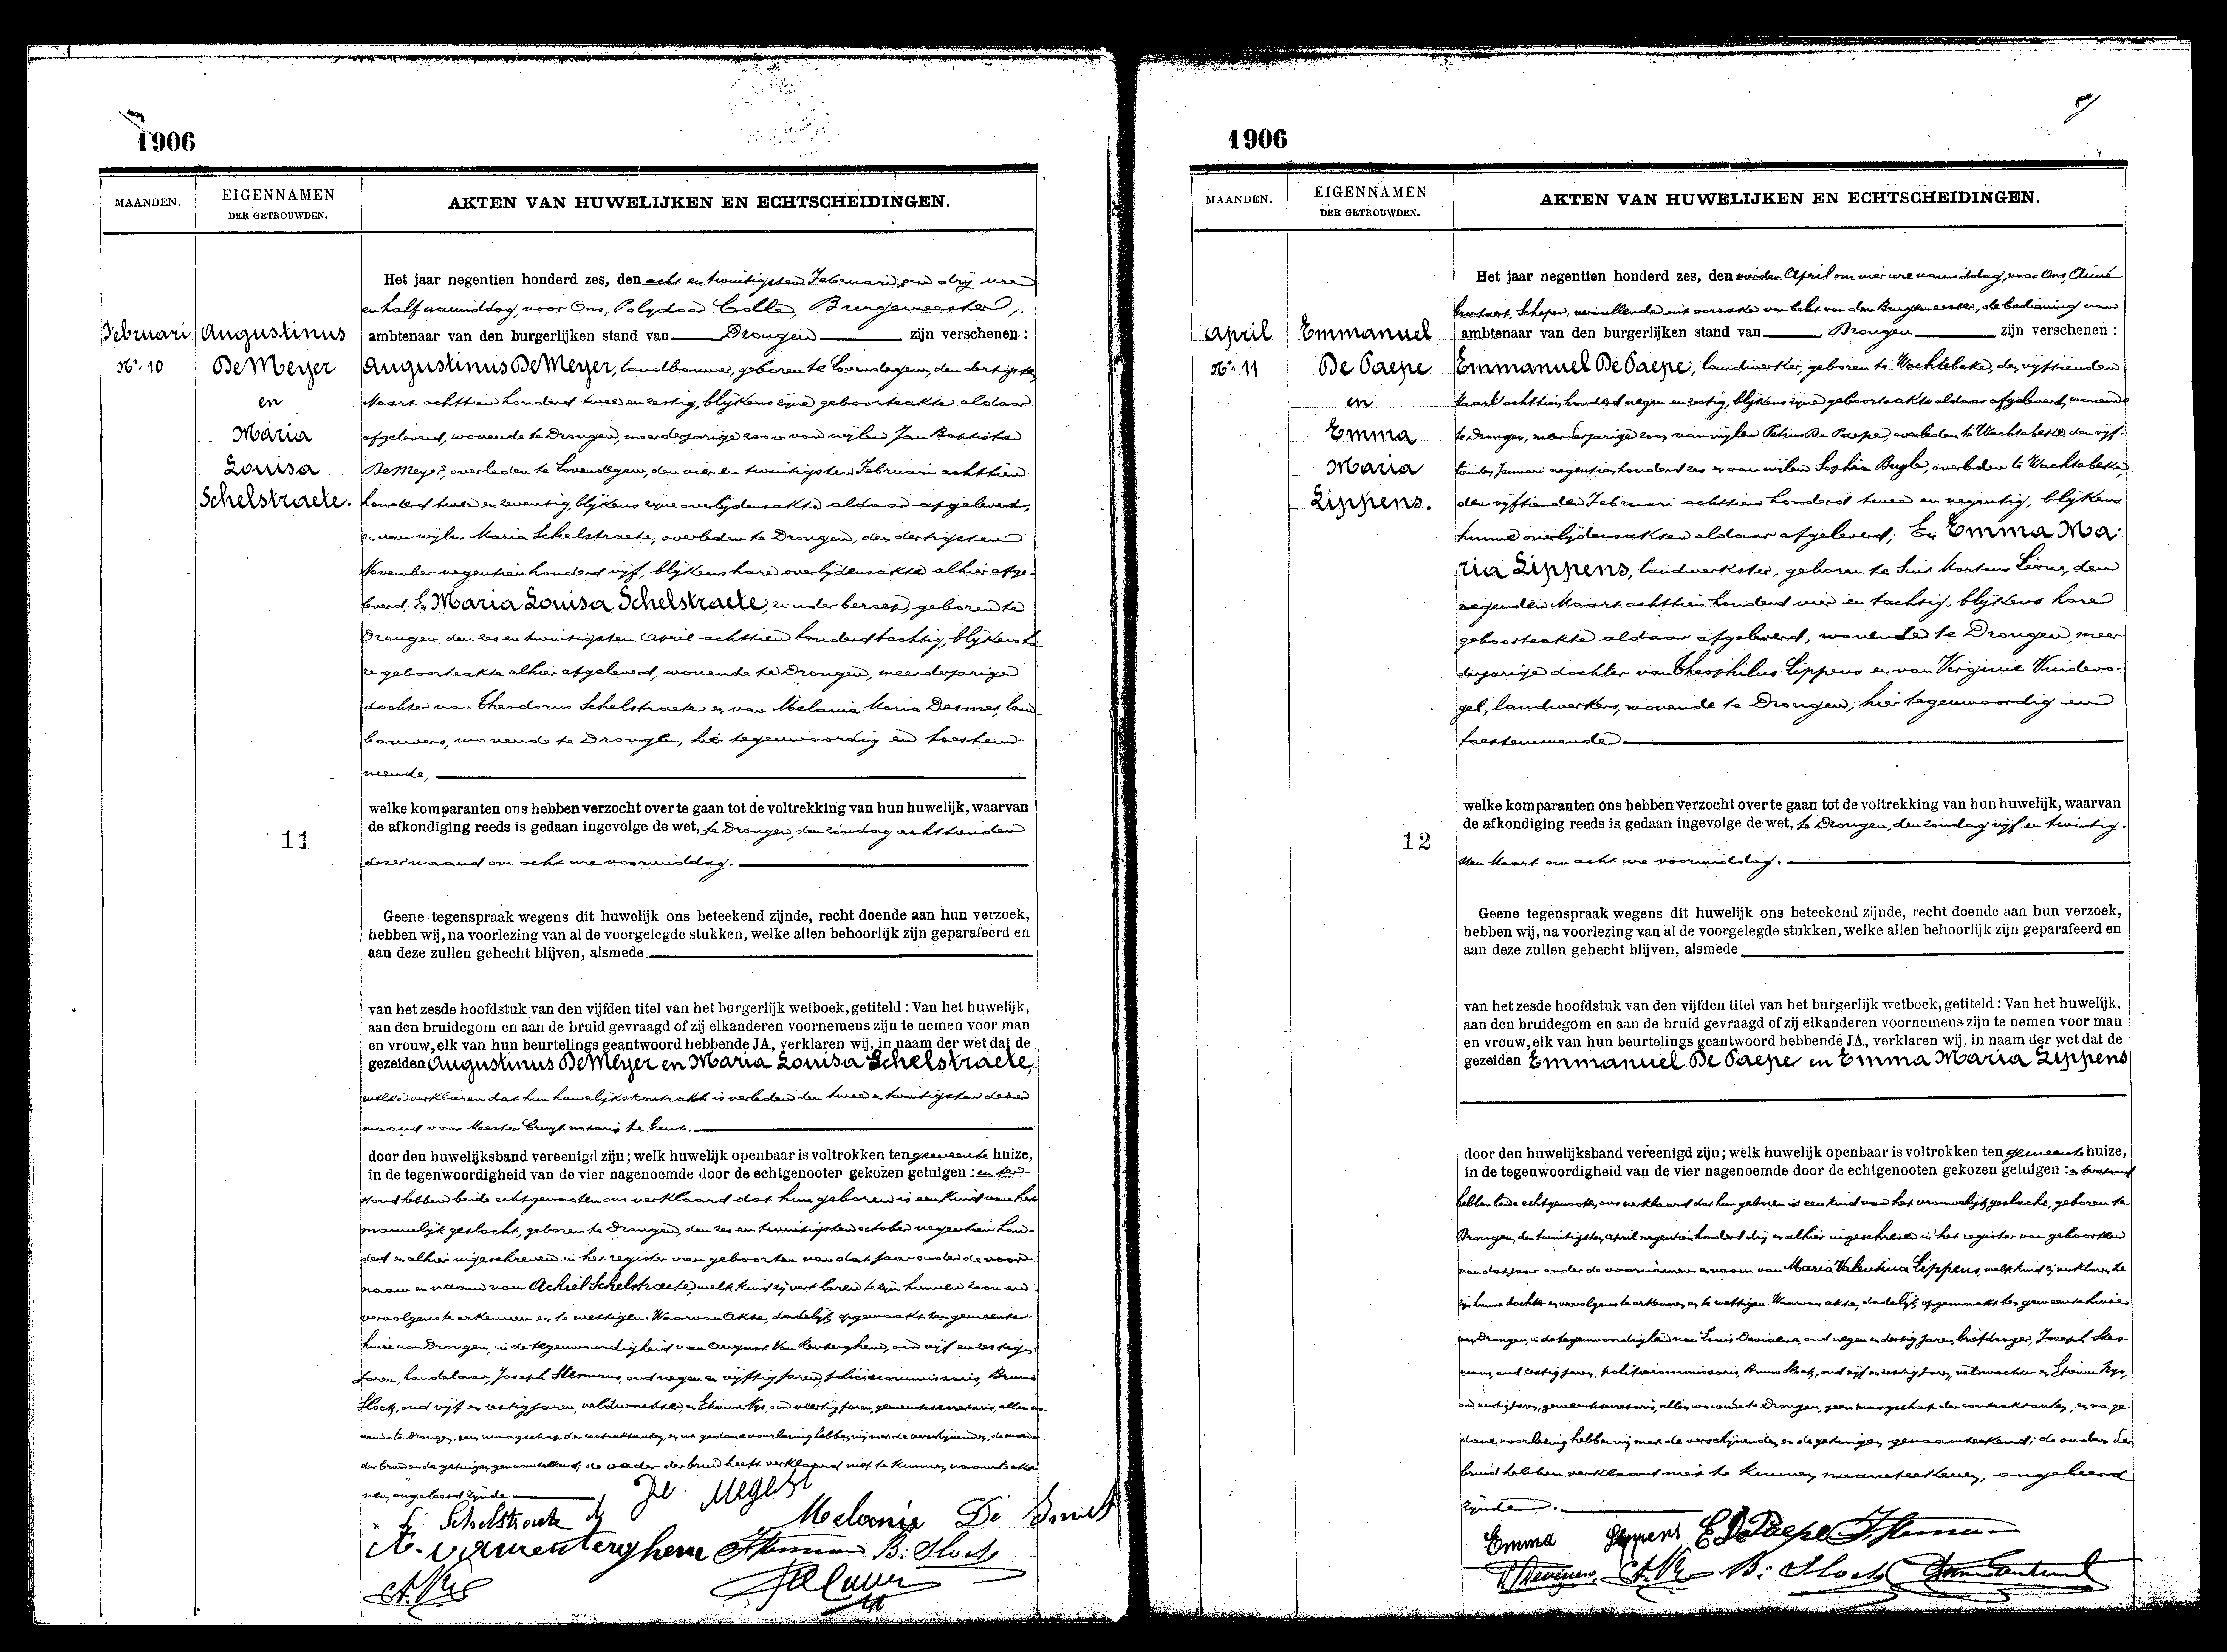 1906
MAANDEN.
EIGENNAMEN
DER GETROUWDEN.
AKTEN VAN HUWELIJKEN EN ECHTSCHEIDINGEN.
Februari
Nr. 10
Augustinus
De Meyer
en
Maria
Louisa
Schelstraete.
11
Het jaar negentien honderd zes, den acht en twintigsten Februari om drij ure
en half namiddag, voor Ons, Polydoor Colle, Burgemeester,
ambtenaar van den burgerlijken stand van Drongen zijn verschenen:
Augustinus De Meyer, landbouwer, geboren te Lovendegem, den dertigsten
Maart achttien honderd twee en zestig, blijkens zijne geboorteakte aldaar
afgeleverd, wonende te Drongen, meerderjarige zoon van wijlen Jan Baptiste
De Meyer, overleden te Lovendegem, den vier en twintigsten Februari achttien
honderd twee en zeventig, blijkens zijne overlijdensakte aldaar afgeleverd,
en van wijlen Maria Schelstraete, overleden te Drongen, den dertigsten
November negentien honderd vijf, blijkens hare overlijdensakte alhier afge-
leverd; En Maria Louisa Schelstraete, zonder beroep, geboren te
Drongen, den zes en twintigsten April achttien honderd tachtig, blijkens ha-
re geboorteakte alhier afgeleverd, wonende te Drongen, meerderjarige
dochter van Theodorus Schelstraete en van Melanie Maria Desmet, land-
bouwers, wonende te Drongen, hier tegenwoordig en toestem-
mende,
welke komparanten ons hebben verzocht over te gaan tot de voltrekking van hun huwelijk, waarvan
de afkondiging reeds is gedaan ingevolge de wet, te Drongen, den zondag achttienden
dezer maand om acht ure voormiddag.
Geene tegenspraak wegens dit huwelijk ons beteekend zijnde, recht doende aan hun verzoek,
hebben wij, na voorlezing van al de voorgelegde stukken, welke allen behoorlijk zijn geparafeerd en
aan deze zullen gehecht blijven, alsmede
van het zesde hoofdstuk van den vijfden titel van het burgerlijk wetboek, getiteld: Van het huwelijk,
aan den bruidegom en aan de bruid gevraagd of zij elkanderen voornemens zijn te nemen voor man
en vrouw, elk van hun beurtelings geantwoord hebbende JA, verklaren wij, in naam der wet dat de
gezeiden Augustinus De Meyer en Maria Louisa Schelstraete,
welke verklaren dat hun huwelijkskontrakt is verleden den twee en twintigsten dezer
maand voor Meester Cruyt notaris te Gent.
door den huwelijksband vereenigd zijn; welk huwelijk openbaar is voltrokken ten gemeente huize,
in de tegenwoordigheid van de vier nagenoemde door de echtgenooten gekozen getuigen: en ter-
stond hebben beide echtgenooten ons verklaard dat hun geboren is een kind van het
mannelijk geslacht, geboren te Drongen, den zes en twintigsten october negentien hon-
derd en alhier ingeschreven in het register van geboorten van dat jaar onder de voor-
naam en naam van Achiel Schelstraete, welk kind zij verklaren te zijn hunnen zoon en
vervolgens te erkennen en te wettigen. Waarvan Akte, dadelijk opgemaakt ten gemeente-
huize van Drongen, in de tegenwoordigheid van August Van Renterghem, oud vijf en zestig
jaren, handelaar, Joseph Stesmans, oud negen en vijftig jaren, policiecommissaris, Bruno
Slock, oud vijf en zestig jaren, veldwachter, en Etienne Nys, oud veertig jaren, gemeentesecretaris, allen wo-
nende te Drongen, geen maagschap der contraktanten, en na gedane voorlezing hebben wij met de verschijnenden, de moeder
der bruid en de getuigen genaamteekend, de vader der bruid heeft verklaard niet te kunnen naamteeke-
nen, ongeleerd zijnde.
De Meyer
Schelstraete
Melanie De Smet
A. Vanrenterghem
B. Slock
1906
MAANDEN.
EIGENNAMEN
DER GETROUWDEN.
AKTEN VAN HUWELIJKEN EN ECHTSCHEIDINGEN.
April
Nr. 11
Emmanuel
De Paepe
en
Emma
Maria
Lippens.
12
Het jaar negentien honderd zes, den vierden April om vier ure namiddag, voor Ons, Aimé
Schepen, vervullende uit oorzake van belet van den Burgemeester, de bediening van
ambtenaar van den burgerlijken stand van Drongen zijn verschenen:
Emmanuel De Paepe, landwerker, geboren te Wachtebeke, den vijftienden
Maart achttien honderd negen en zestig, blijkens zijne geboorteakte aldaar afgeleverd, wonende
te Drongen, meerderjarige zoon van wijlen Petrus De Paepe, overleden te Wachtebeke den vijf-
tienden Januari negentien honderd zes en van wijlen Sophia Buyle, overleden te Wachtebeke,
den vijftienden Februari achttien honderd twee en negentig, blijkens
hunne overlijdensakten aldaar afgeleverd; En Emma Ma-
ria Lippens, landwerkster, geboren te Sint Martens Leerne, den
negenden Maart achttien honderd vier en tachtig, blijkens hare
geboorteakte aldaar afgeleverd, wonende te Drongen, meer-
derjarige dochter van Theophilus Lippens en van Virginie Vindevo-
gel, landwerkers, wonende te Drongen, hier tegenwoordig en
toestemmende
welke komparanten ons hebben verzocht over te gaan tot de voltrekking van hun huwelijk, waarvan
de afkondiging reeds is gedaan ingevolge de wet, te Drongen, den zondag vijf en twintig-
sten Maart om acht ure voormiddag.
Geene tegenspraak wegens dit huwelijk ons beteekend zijnde, recht doende aan hun verzoek,
hebben wij, na voorlezing van al de voorgelegde stukken, welke allen behoorlijk zijn geparafeerd en
aan deze zullen gehecht blijven, alsmede
van het zesde hoofdstuk van den vijfden titel van het burgerlijk wetboek, getiteld: Van het huwelijk,
aan den bruidegom en aan de bruid gevraagd of zij elkanderen voornemens zijn te nemen voor man
en vrouw, elk van hun beurtelings geantwoord hebbende JA, verklaren wij, in naam der wet dat de
gezeiden Emmanuel De Paepe en Emma Maria Lippens
door den huwelijksband vereenigd zijn; welk huwelijk openbaar is voltrokken ten gemeente huize,
in de tegenwoordigheid van de vier nagenoemde door de echtgenooten gekozen getuigen: en terstond
hebben beide echtgenooten ons verklaard dat hun geboren is een kind van het vrouwelijk geslacht, geboren te
Drongen, den twintigsten april negentien honderd drij en alhier ingeschreven in het register van geboorten
van dat jaar onder de voornamen en naam van Maria Valentina Lippens, welk kind zij verklaren te
zijn hunne dochter en vervolgens te erkennen en te wettigen. Waarvan akte, dadelijk opgemaakt ten gemeentehuize
van Drongen, in de tegenwoordigheid van Louis oud negen en dertig jaren, briefdrager, Joseph Stes-
mans, oud zestig jaren, policiecommissaris, Bruno Slock, oud vijf en zestig jaren, veldwachter en Etienne Nys,
oud veertig jaren, gemeentesecretaris, allen wonende te Drongen, geen maagschap der contraktanten, en na ge-
dane voorlezing hebben wij met de verschijnenden en de getuigen genaamteekend; de ouders der
bruid hebben verklaard niet te kunnen naamteekenen, ongeleerd
zijnde.
Emma Lippens E De Paepe
B. Slock